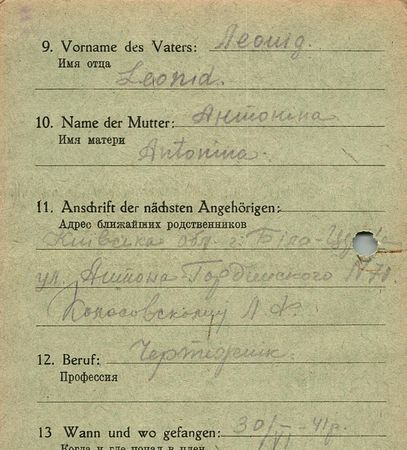 9. Vorname des Vaters: Леонид.
Имя отца
Leonid.
10. Name der Mutter: Антонина
Имя матери
Antonina.
11. Anschrift der nächsten Angehörigen:
Адрес ближайших родственников
Київська обл. г. Біла-
ул. Антона N 70
Колосовскому Л
12. Beruf: Чертежник.
Профессия
13 Wann und wo gefangen: 30/VI-41г.
Когда и где попал в плен